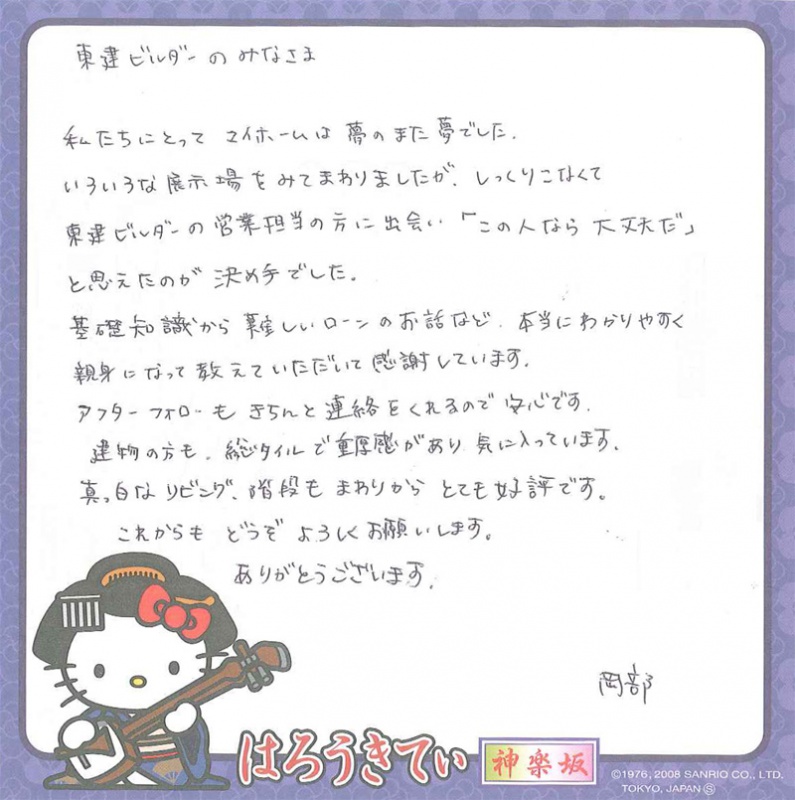 東建ビルダーのみなさま
私たちにとって マイホームは 夢のまた夢でした.
いろいろな展示場をみてまわりましたが、しっくりこなくて
東建ビルダーの営業担当の方に出会い「この人なら 大丈夫だ」
と思えたのが 決め手でした。
基礎知識から 難しいローンのお話など、本当にわかりやすく
親身になって教えていただいて感謝しています.
アフターフォローも きちんと連絡をくれるので 安心です.
建物の方も、総タイルで重厚感があり 気に入っています.
真っ白なリビング、階段も まわりから とても好評です。
これからも どうぞ よろしくお願いします。
ありがとうございます.
岡部
はろうきてぃ
神楽坂
©1976, 2008 SANRIO CO., LTD.
TOKYO, JAPAN Ⓢ